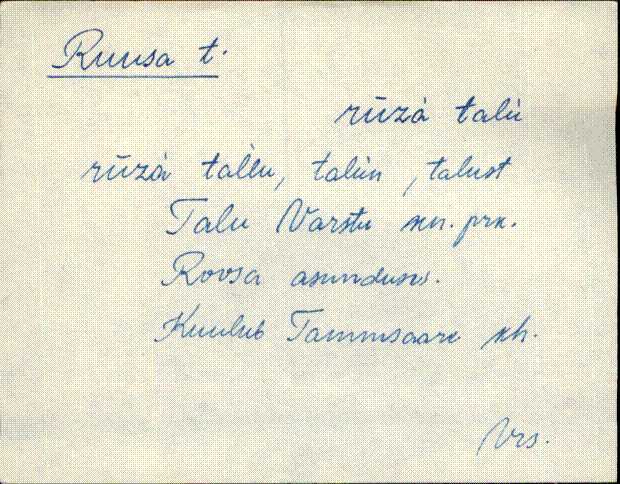 Ruusa t.
rūzà talù
rūzà tal̀lu, talùn, talust
Talu Varstu kn. prk.
Roosa asunduses.
Kuulub Tammsaare kh.
Vrs.